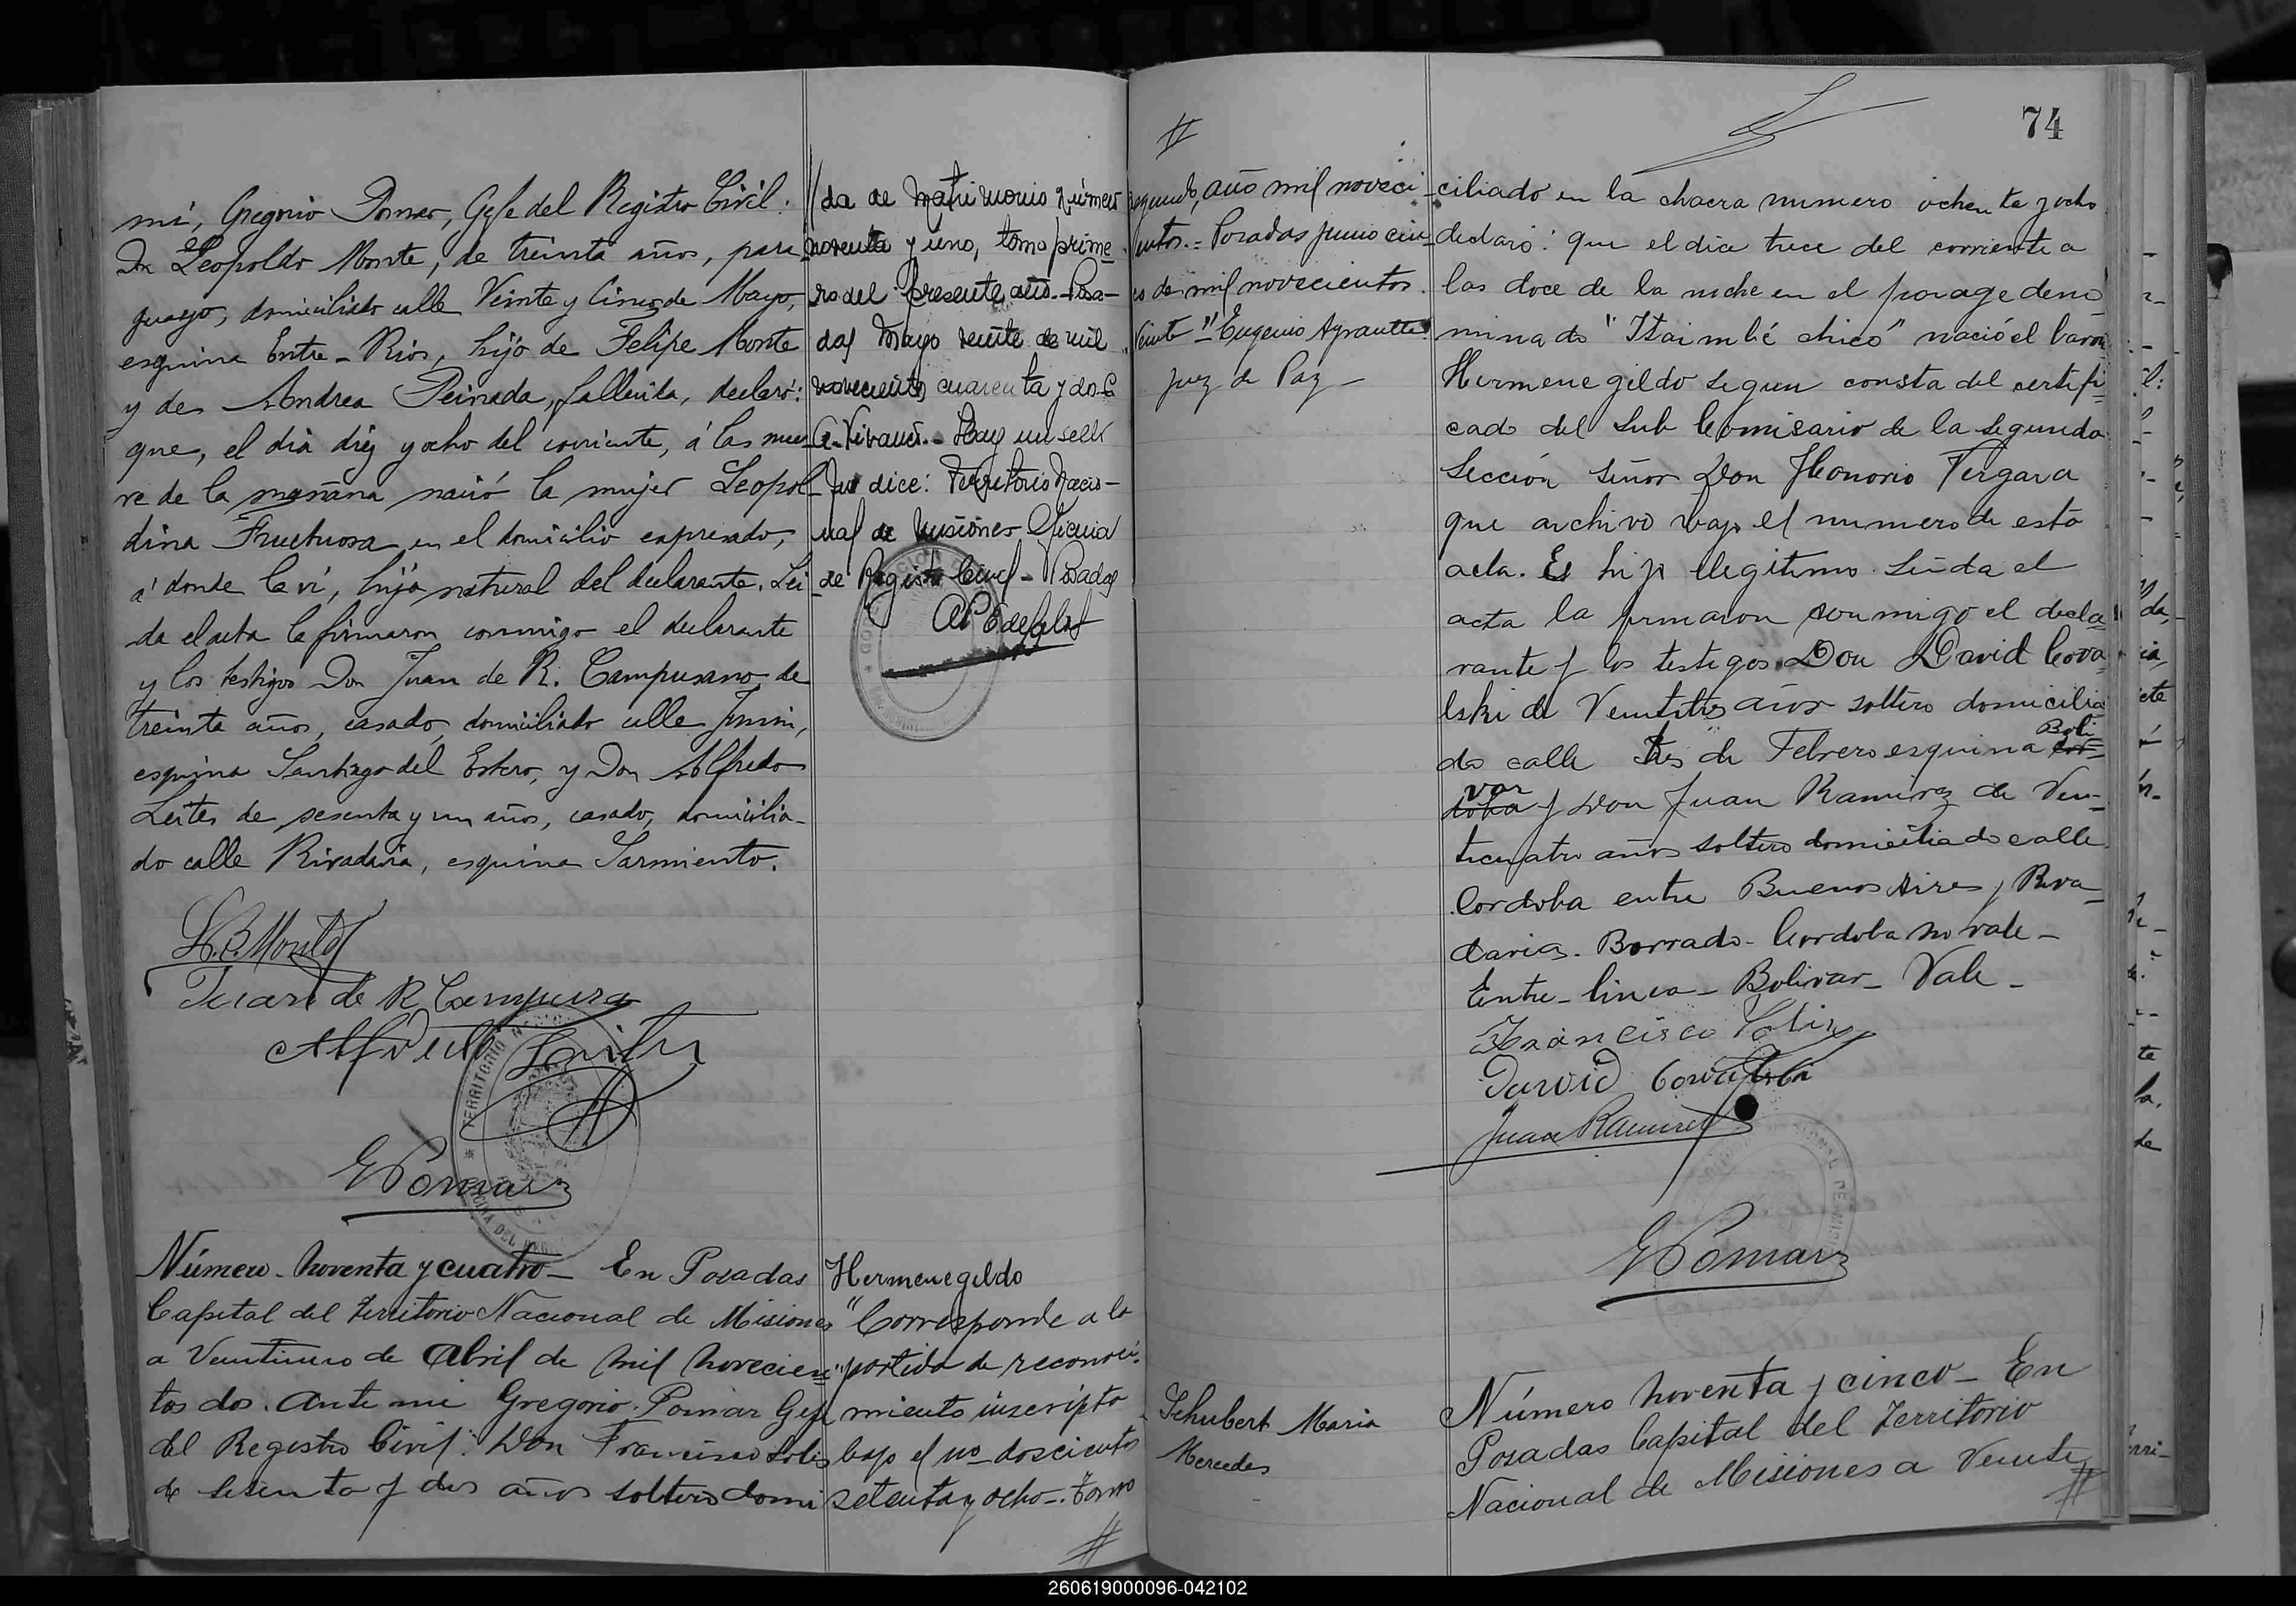 mí, Gregorio Pomar, Gefe del Registro Civil:
Don Leopoldo Monte, de treinta años, para
guayo, domiciliado calle Veinte y Cinco de Mayo,
esquina Entre-Rios, hijo de Felipe Monte
y de Andrea Peinada, fallecida, declaró:
que, el dia diez y ocho del corriente, á las nue
ve de la mañana nació la mujer Leopol
dina Fructuosa en el domicilio expresado,
á donde la ví, hija natural del declarante. Lei
da el acta la firmaron conmigo el declarante
y los testigos Don Juan de R. Campusano de
treinta años, casado, domiciliado calle Junin,
esquina Santiago del Estero, y Don Alfredo
Leites de sesenta y un años, casado, domicilia-
do calle Rivadavia, esquina Sarmiento.
Juan de R. Campusa
Alfredo Leites
GPomar
Número noventa y cuatro - En Posadas
Capital del Territorio Nacional de Misiones
a Veintiuno de Abril de Mil Novecien=
tos dos. Ante mi Gregorio Pomar Gefe
del Registro Civil: Don Francisco Solis
de sesenta y dos años soltero domi
//da de Matrimonio número
noventa y uno, tomo prime
ro del presente año.- Posa-
das Mayo veinte de mil
novecientos cuarenta y dos.
Hay un sello
que dice: Territorio Nacio-
nal de Misiones Oficina
de Registro Civil - Posadas
Hermenegildo
"Corresponde a la
"partida de reconoci-
miento inscripta
bajo el no doscientos
setenta y ocho-. Tomo
#
#
segundo, año mil noveci-
entos.= Posadas Junio cin-
co de mil novecientos
Veinte" Eugenio
Juez de Paz -
Schubert Maria
Mercedes
74
ciliado en la chacra numero ochenta y ocho
declaró: que el dia trece del corriente a
las doce de la noche en el parage deno
minado "Itaimbé chico" nació el varon
Hermenegildo segun consta del certifi
cado del Sub Comisario de la Segunda
Sección Señor Don Honorio Vergara
que archivo bajo el numero de esta
acta. Es hijo ilegitimo. Leida el
acta la firmaron conmigo el decla=
rante y los testigos Don David Cova
lski de Veintitres años soltero domicilia
do calle Tres de Febrero esquina Cor= Boli
doba var y Don Juan Ramirez de Vein-
ticuatro años soltero domiciliado calle
Cordoba entre Buenos Aires y Riva-
davia. Borrado- Cordoba no vale-
Entre-linea- Bolivar- Vale-
Francisco Solis
David Covalski
Juan Ramirez
GPomar
Número noventa y cinco - En
Posadas Capital del Territorio
Nacional de Misiones a Veinte
#
260619000096-042102